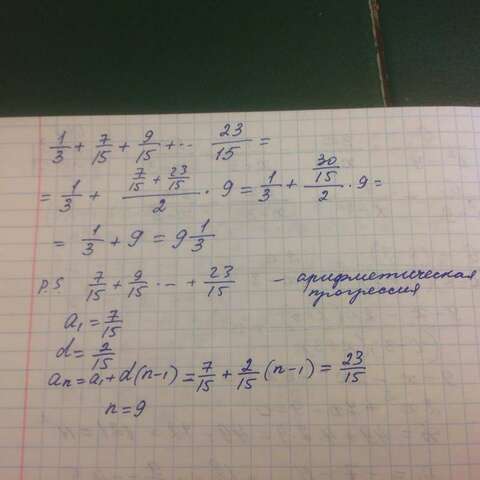 1/3 + 7/15 + 9/15 + ... 23/15 =
= 1/3 + (7/15 + 23/15)/2 · 9 = 1/3 + (30/15)/2 · 9 =
= 1/3 + 9 = 9 1/3
p.s 7/15 + 9/15 ... + 23/15 - арифметическая
прогрессия
a₁ = 7/15
d = 2/15
aₙ = a₁ + d(n-1) = 7/15 + 2/15 (n-1) = 23/15
n = 9